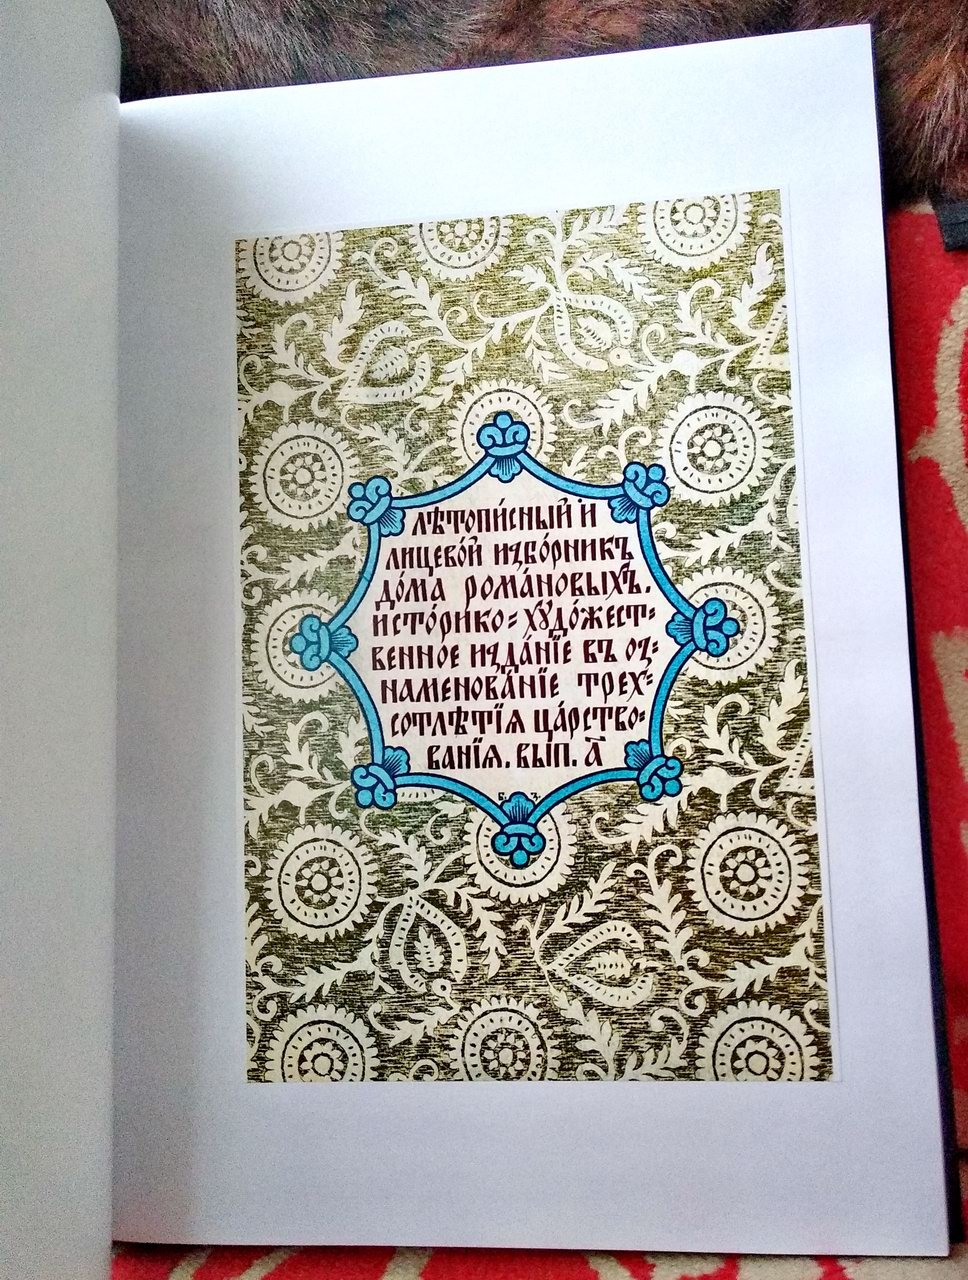 Лѣтопи́сный и
лицево́й избо́рникъ
до́ма рома́новыхъ.
исто́рико=худо́жест=
венное изда́нїе въ оз=
наменова́нїе трех=
сотлѣтїѧ ца́рство=
ванїѧ. вып. а҃
Б. З.